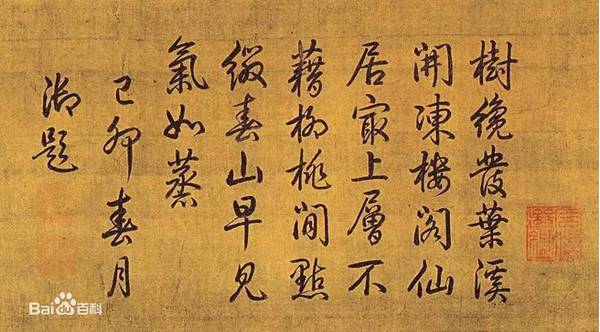 樹纔發葉溪
開凍樓閣仙
居最上層不
藉柳桃閒點
綴春山早見
氣如蒸
己卯春月
御題
Bai百科